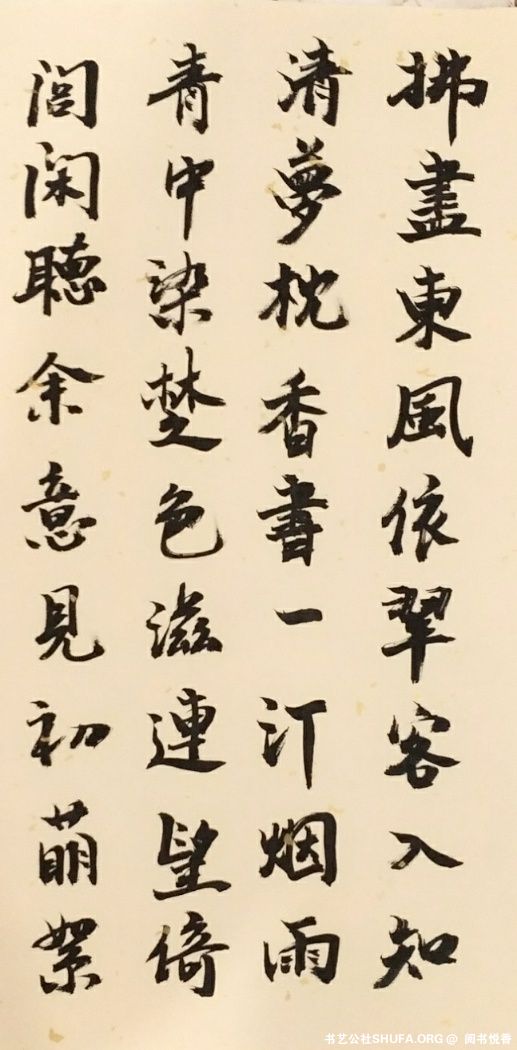 拂盡東風依翠客入知
清夢枕香書一汀烟雨
青中染楚色滋連望倚
閭閑聽余意見初萌絮
书艺公社SHUFA.ORG @ 阅书悦香